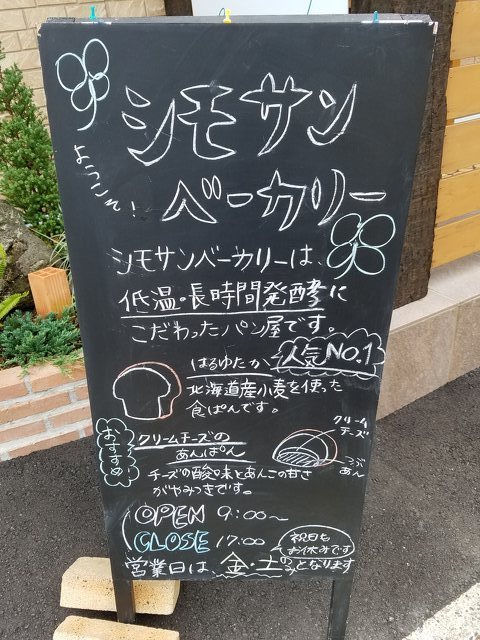 シモサン
ようこそ!
ベーカリー
シモサンベーカリーは、
低温・長時間発酵に
こだわったパン屋です。
人気NO.1
はるゆたか
北海道産小麦を使った
食ぱんです。
おすすめ
クリームチーズの
あんぱん
クリーム
チーズ
つぶ
あん
チーズの酸味とあんこの甘さ
がやみつきです。
OPEN 9:00~
CLOSE 17:00
祝日も
お休みです
営業日は、金・土のみとなります